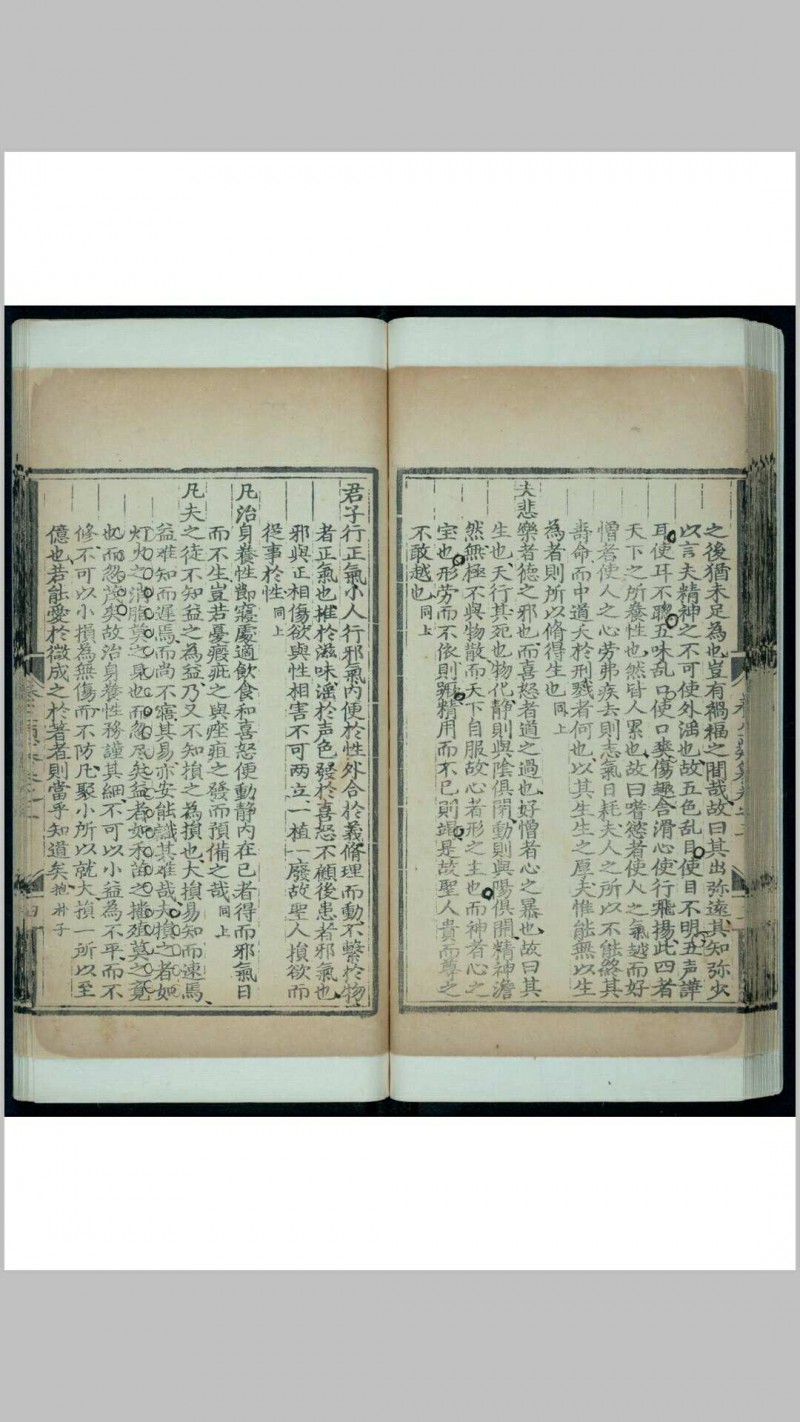 之後猶未足為也豈有禍福之間哉故曰其出弥遠其知弥少
以言夫精神之不可使外滛也故五色乱目使目不明五声譁
耳使耳不聰五味乱口使口爽傷趣舍滑心使行飛揚此四者
天下之所養性也然皆人累也故曰嗜慾者使人之氣越而好
憎者使人之心劳弗疾去則志氣日耗夫人之所以不能終其
壽命而中道夭於刑戮者何也以其生生之厚夫惟能無以生
為者則所以脩得生也同上
夫悲樂者德之邪也而喜怒者道之過也好憎者心之暴也故曰其
生也天行其死也物化静則與陰俱閉動則與陽俱開精神澹
然無極不與物散而天下自服故心者形之主也而神者心之
宝也形劳而不依則蹶精用而不已則竭是故聖人貴而尊之
不敢越也同上
君子行正氣小人行邪氣内便於性外合於義脩理而動不繫於物
者正氣也推於滋味滛於声色發於喜怒不顧後患者邪氣也
邪與正相傷欲與性相害不可两立一植一廢故聖人損欲而
從事於性同上
凡治身養性節寢處適飲食和喜怒便動静内在已者得而邪氣日
而不生豈若憂瘕疵之與痤疽之發而預備之哉同上
凡夫之徒不知益之為益乃又不知損之為損也大損易知而速馬
益难知而遲馬而尚不寤其易亦安能識其难哉夫損之者如
灯火之消脂莫之見也而忽尽矣益者如禾苗之播殖莫之覔
也而忽茂矣故治身養性務謹其細不可以小益為不平而不
修不可以小損為無傷而不防凡聚小所以就大損一所以至
億也若能愛於微成之於著者則當乎知道矣抱朴子